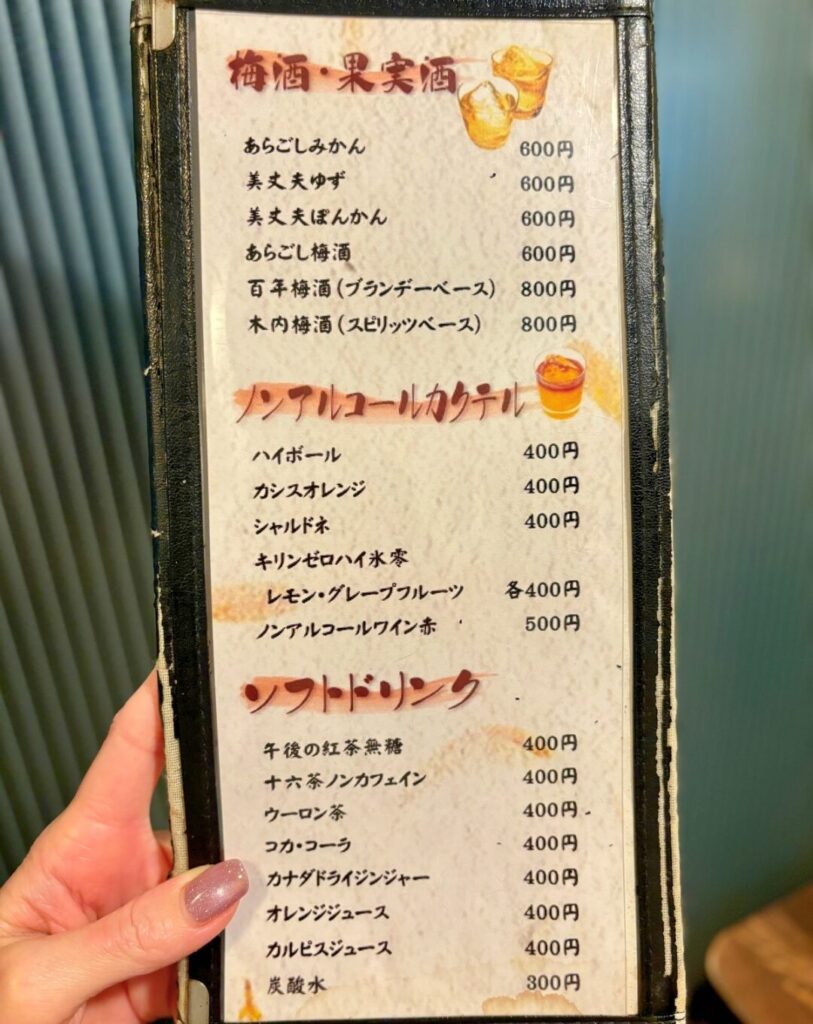 梅酒・果実酒
あらごしみかん 600円
美丈夫ゆず 600円
美丈夫ぽんかん 600円
あらごし梅酒 600円
百年梅酒(ブランデーベース) 800円
木内梅酒(スピリッツベース) 800円
ノンアルコールカクテル
ハイボール 400円
カシスオレンジ 400円
シャルドネ 400円
キリンゼロハイ氷零
レモン・グレープフルーツ 各400円
ノンアルコールワイン赤 500円
ソフトドリンク
午後の紅茶無糖 400円
十六茶ノンカフェイン 400円
ウーロン茶 400円
コカ・コーラ 400円
カナダドライジンジャー 400円
オレンジジュース 400円
カルピスジュース 400円
炭酸水 300円